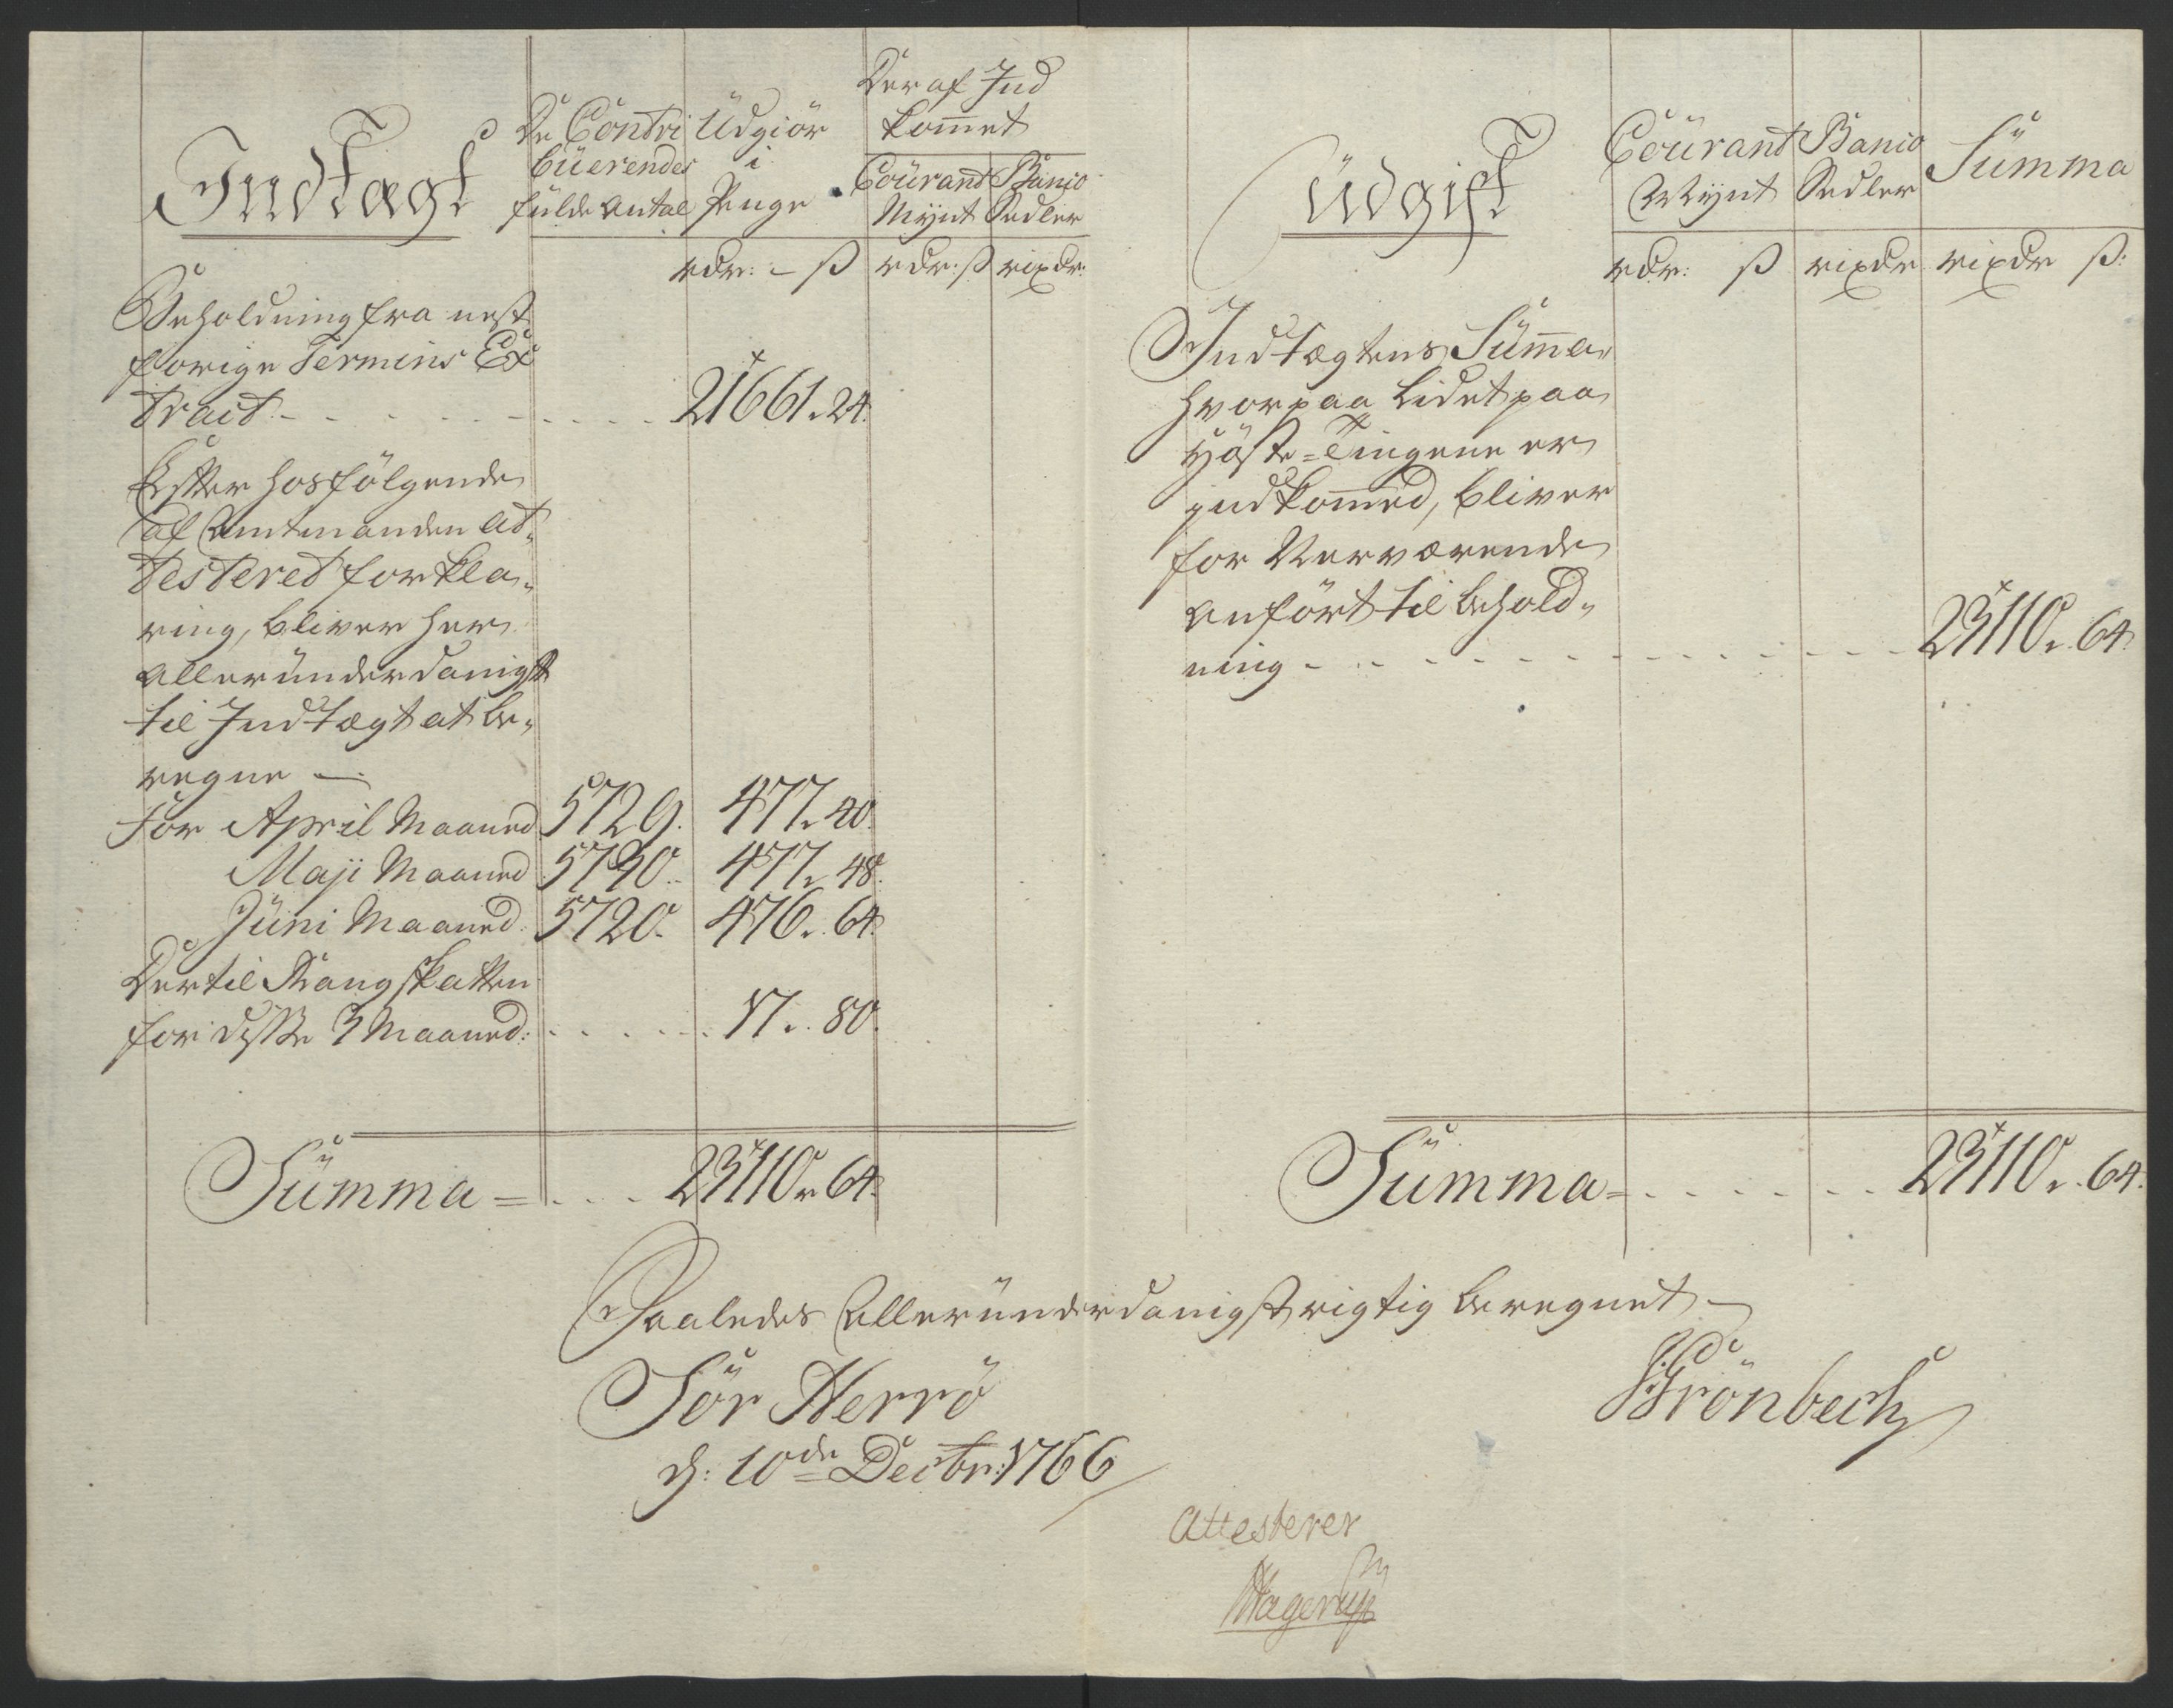 Indtægt
De Contri
büerendes
fulde Antal
Üdgiör
i
Penge
Deraf Ind
kommet
Courant
Mÿnt
Banco
Sedler
rdr: - ß
rdr: ß
rixdr:
Beholdning fra nest
forige Termins Ex
tract - - - - 21661. 24.
Efter hosfölgende
af Amtmanden at„
testeret forkla„
ring, bliver her
alleründerdanigst
til Indtægt at be„
regne —
for April Maaned 5729. 477. 40.
Maji Maaned 5730. 477. 48.
Jüni Maaned. 5720. 476. 64.
Dertil Rangskatten
for disse 3 Maaned: - - - 17. 80.
Summa = - - - 23110. 64.
Üdgift
Courant
Mÿnt
Banco
Sedler
Summa
rdr: ß
rixdr
rixdr ß:
Indtægtens Summa„
hvorpaa lidet paa
Höste-Tingene er
indkommed, bliver
for Nærværende
anfört til behold„
ning - - - - 23110. 64.
Summa = - - - 23110. 64.
Saaledes Alleründerdanigst rigtig beregnet —
Sör Herrö
d: 10de Decbr: 1766
Grönbech
Attesterer
Hagerup